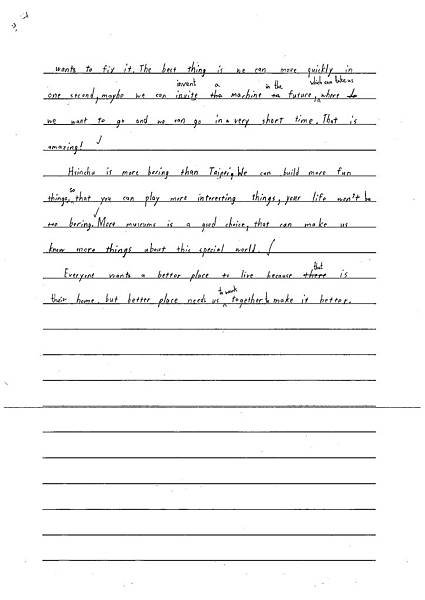 wants to fix it. The best thing is we can move quickly in
invent a in the which can take us
one second, maybe we can invite the machine to future, where to
we want to go and we can go in a very short time. That is
amazing!
Hsinchu is more boring than Taipei, We can build more fun
so
things, that you can play more interesting things, your life won't be
too boring. More museums is a good choice, that can make us
know more things about this special world.
that
Everyone wants a better place to live because there is
to work
their home. but better place needs us together to make it better.